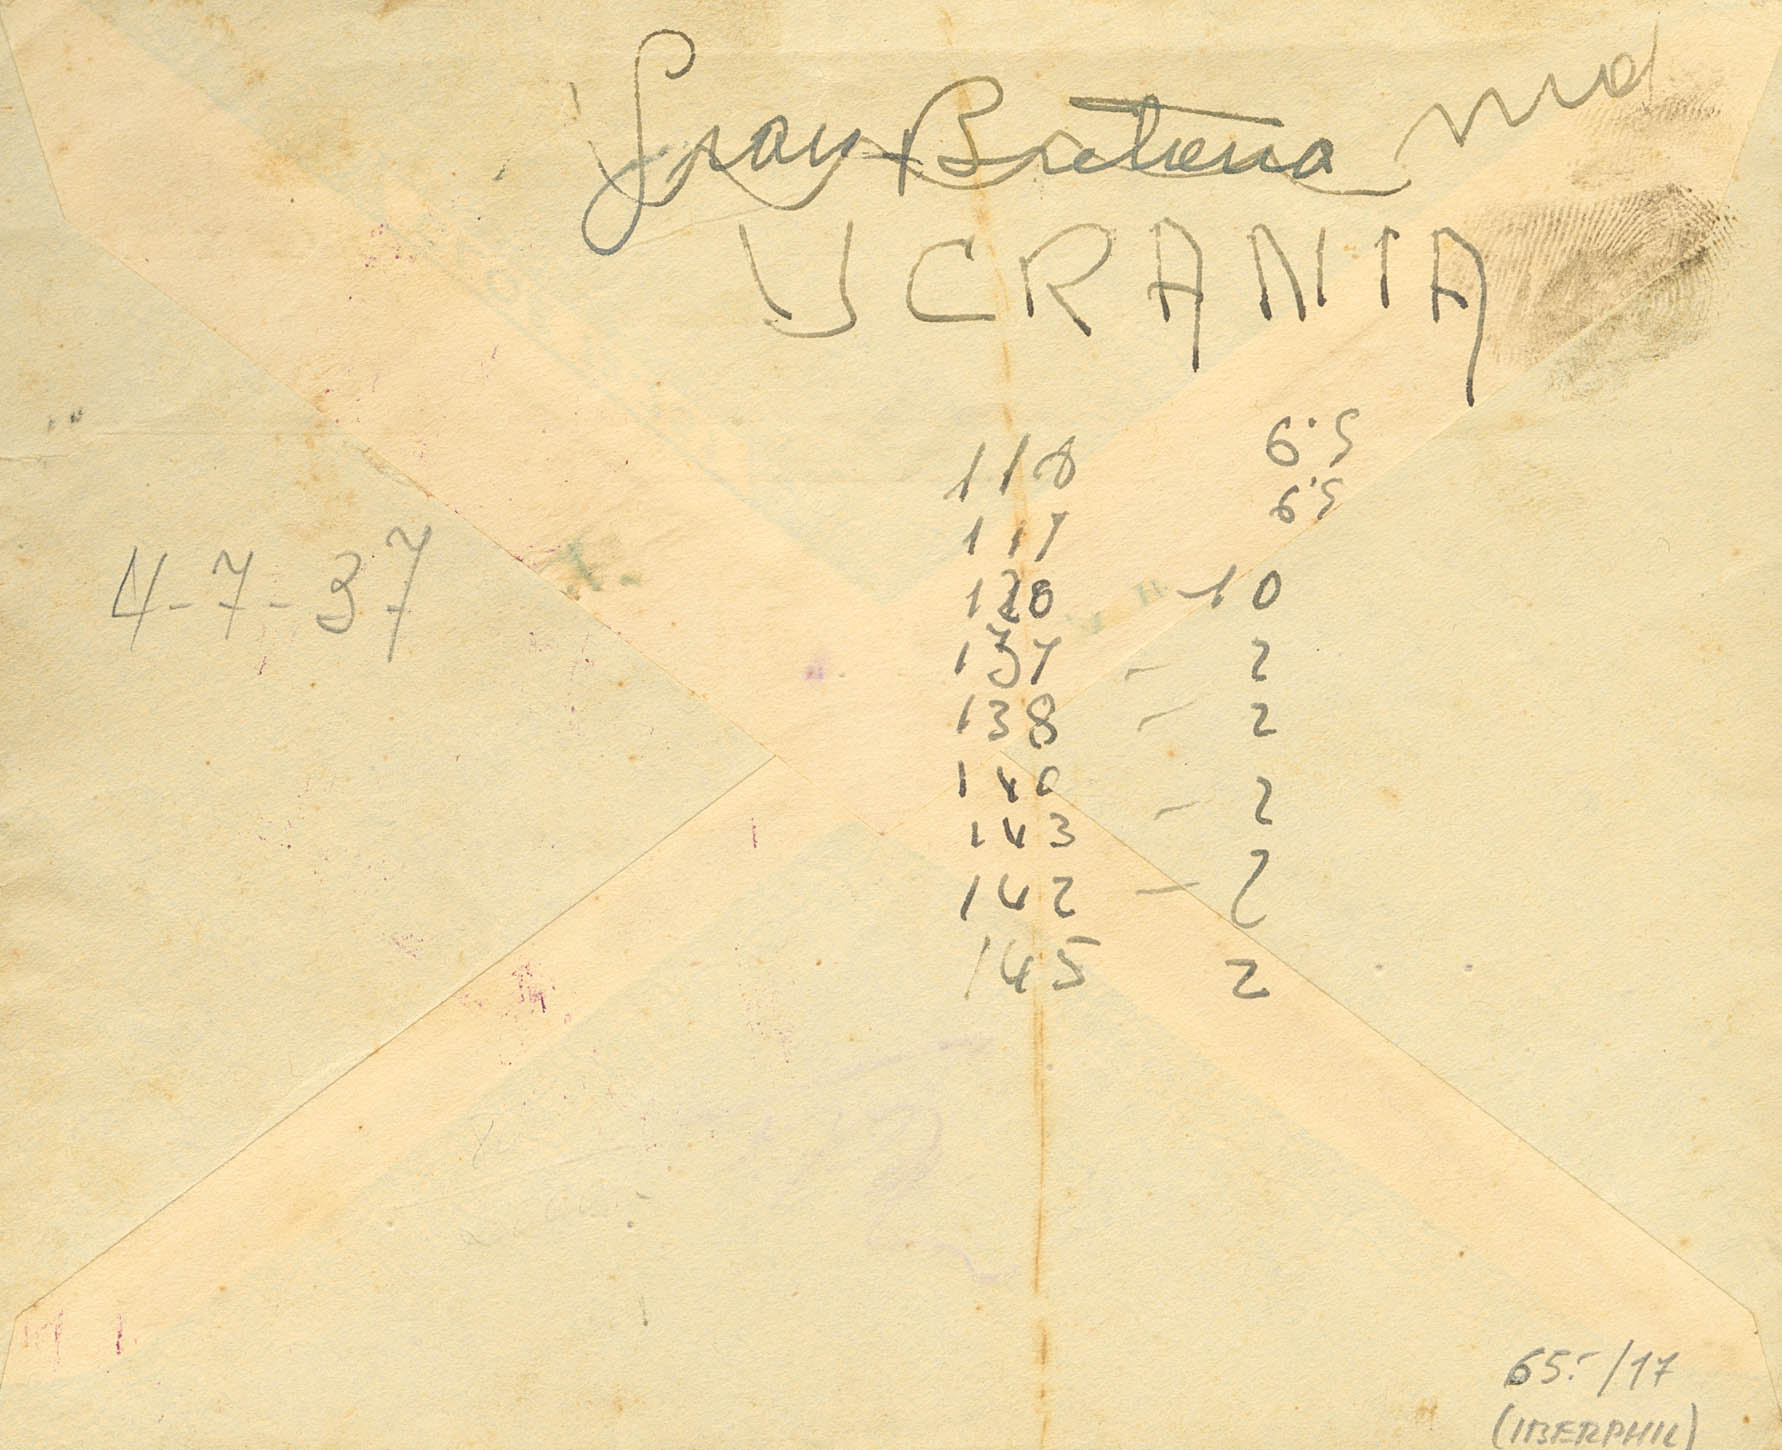 Gran Bretena
UCRANIA
118 6'5
117 6'5
4-7-37
120 - 10
137 - 2
138 - 2
140 - 2
143
142 - 2
145 2
65.-/17
(IBERPHIL)